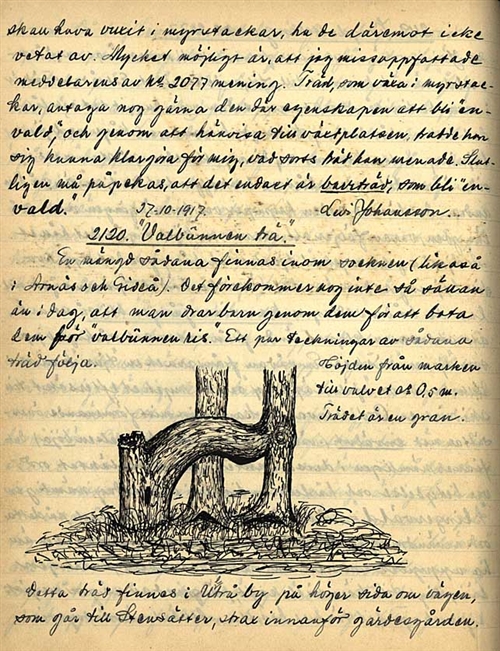 skall hava vuxit i myrstackar, ha de däremot icke
vetat av. Mycket möjligt är, att jag missuppfattade
meddelarens av no 2077 mening. Träd, som växa i myrstac-
kar, antaga nog gärna den där egenskapen att bli "en-
vald," och genom att hänvisa till växtplatsen, hade han
sig kunna klargöra för mig, vad sorts träd han menade. Slut-
ligen må påpekas, att det endast är barrträd, som bli "en-
vald." 27-10-1917. Levi Johansson.
2120. "Valbünnen trä."
En mängd sådana finnas inom socknen (likaså
i Arnäs och Gideå). Det förekommer nog inte så sällan
än i dag, att man drar barn genom dem för att bota
dem för "valbünnen ris." Ett par teckningar av sådana
träd följa. Höjden från marken
till valvet är 0,5 m.
Trädet är en gran.
Detta träd finnes i Uttrå by på höger sida om vägen,
som går till Stensätter, strax innanför gärdesgården.